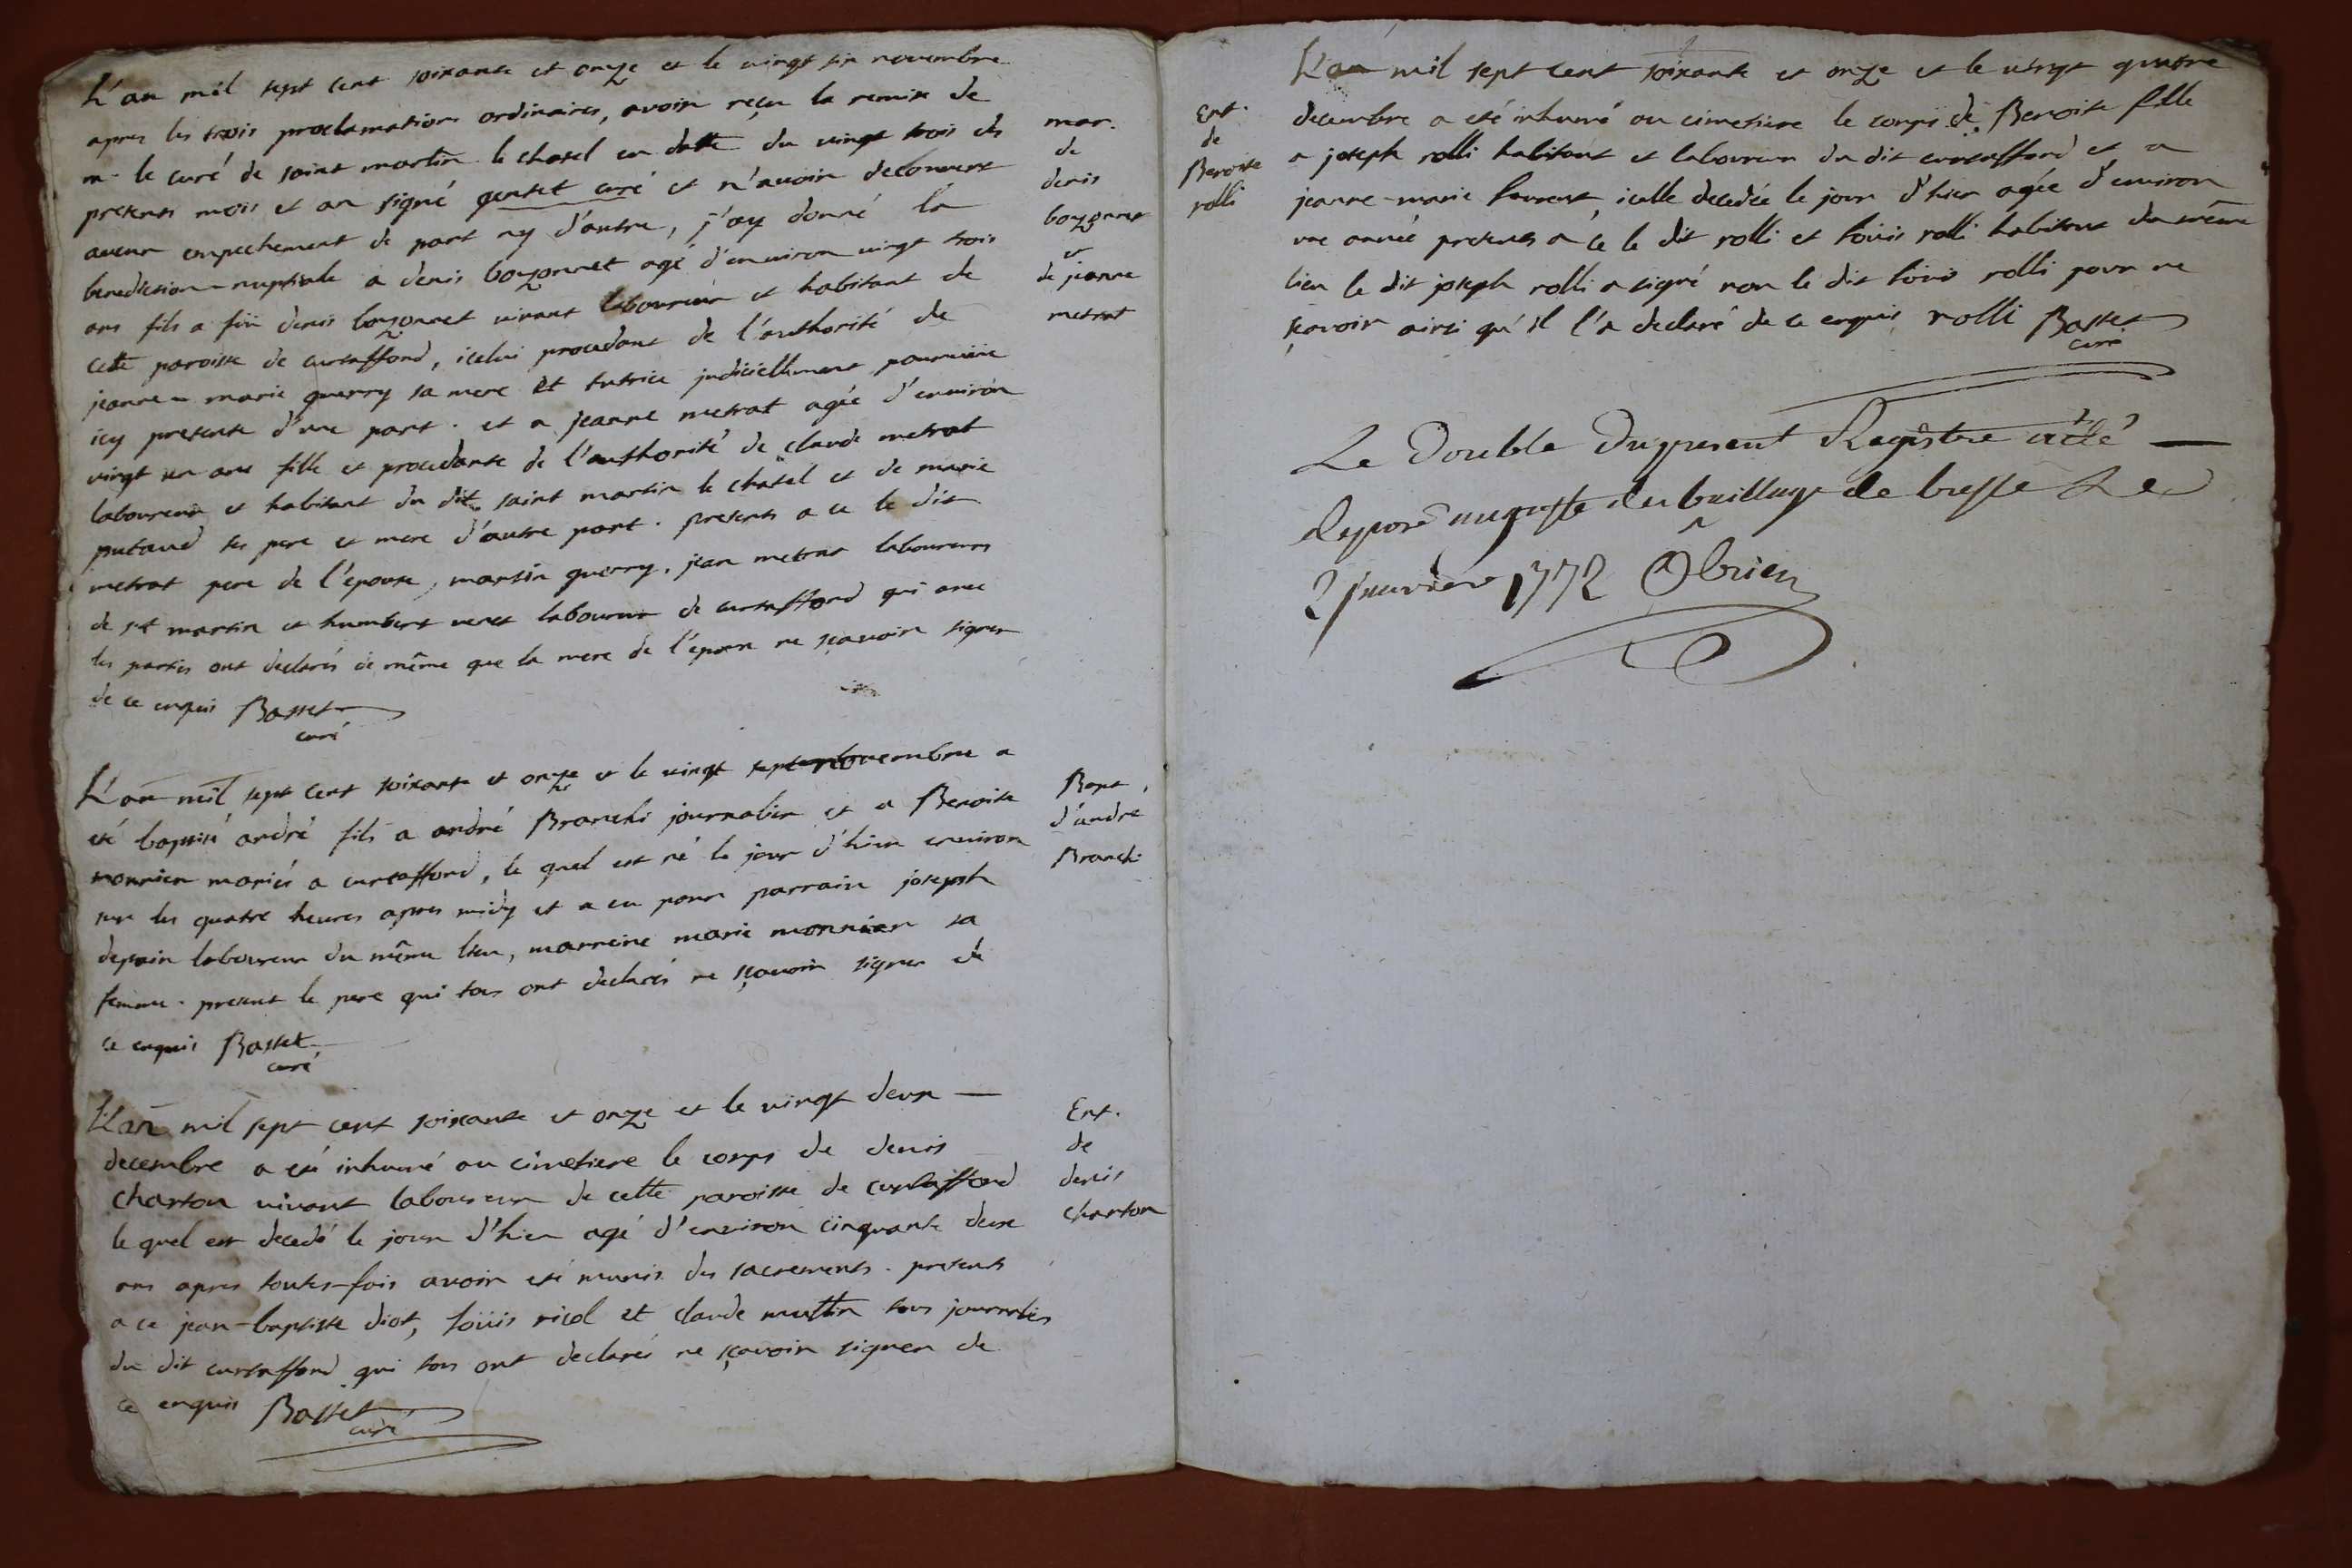 L'an mil sept cent soixante et onze et le vingt six novembre
apres les trois proclamations ordinaires, avoir reçu la remise de
mr le curé de saint martin le chatel en datte du vingt trois des
presents mois et an signé gentet curé et n'avoir decouvert
aucun empechement de part ny d'autre, j'ay donné la
benediction nuptiale a denis boyonnet agé d'environ vingt trois
ans fils a fûi denis boyonnet vivant laboureur et habitant de
cette paroisse de curtaffond, icelui procedant de l'authorité de
jeanne-marie guerry sa mere et tutrice judiciellement pourvüe
icy presente d'une part. et a jeanne metrat agée d'environ
vingt un ans fille et procedante de l'authorité de claude metrat
laboureur et habitant du dit saint martin le chatel et de marie
putaud ses pere et mere d'autre part. presents a ce le dit
metrat pere de l'epouse, martin guerry, jean metrat laboureurs
de st martin et humbert veret laboureur de curtaffond qui avec
les parties ont declarés de même que la mere de l'epoux ne sçavoir signer
de ce enquis Basset
curé
mar.
de
denis
boyonnet
et
de jeanne
metrat
L'an mil sept cent soixante et onze et le vingt sept novembre a
eté baptisé andré fils a andré Branchi journalier et a Benoite
monnier mariés a curtaffond, le quel est né le jour d'hier environ
sur les quatre heures apres midy et a eu pour parrain joseph
depain laboureur du même lieu, marreine marie monnier sa
femme. present le pere qui tous ont declarés ne sçavoir signer de
ce enquis Basset
curé
Bapt.
d'andré
Branchi
L'an mil sept cent soixante et onze et le vingt deux —
decembre a eté inhumé au cimetiere le corps de denis
charton vivant laboureur de cette paroisse de curtaffond
le quel est decedé le jour d'hier agé d'environ cinquante deux
ans apres toutes-fois avoir eté munis des sacrements. presents
a ce jean-baptiste diot, loüis nicol et claude muttin tous journaliers
du dit curtaffond qui tous ont declarés ne sçavoir signer de
ce enquis Basset
curé
Ent.
de
denis
charton
L'an mil sept cent soixante et onze et le vingt quatre
decembre a eté inhumé au cimetiere le corps de Benoite fille
a joseph rolli habitant et laboureur du dit curtaffond et a
jeanne-marie laurent, icelle decedée le jour d'hier agée d'environ
une année presents a ce le dit rolli et loüis rolli habitans du même
lieu le dit joseph rolli a signé non le dit loüis rolli pour ne
sçavoir ainsi qu'il l'a declaré de ce enquis rolli Basset
curé
Ent.
de
Benoite
rolli
Le Double du present Registre a été —
deposé au greffe du bailliage de bresse Le
2 janvier 1772 Obrien